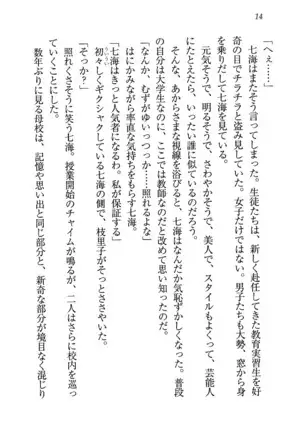 14
「へぇ……」
七海はまたそう言ってしまった。生徒たちは、新しく赴任してきた教育実習生を好
奇の目でチラチラと盗み見していった。女子だけではない。男子たちも大勢、窓から身
を乗りだして七海を見ている。
元気そうで、明るそうで、さわやかそうで、美人で、スタイルもよくって、芸能人
にたとえたら、いったい誰に似ているのだろう。
そんな、あからさまな視線を浴びると、七海はなんだか気恥ずかしくなった。普段
の自分は大学生なのに、ここでは教師なのだと改めて思い知ったのだ。
「なんか、むずがゆいっつか……照れるよな」
はにかみながら率直な気持ちをもらす七海。
「七海はきっと人気者になるわ。私が保証する」
初々しくギクシャクしている七海の側で、枝里子がそっとささやいた。
「そっか？」
照れくさそうに笑う七海。授業開始のチャイムが鳴るが、二人はさらに校内を巡っ
ていくことにした。
数年ぶりに見る母校は、記憶や思い出と同じ部分と、新奇な部分が境目なく混じり